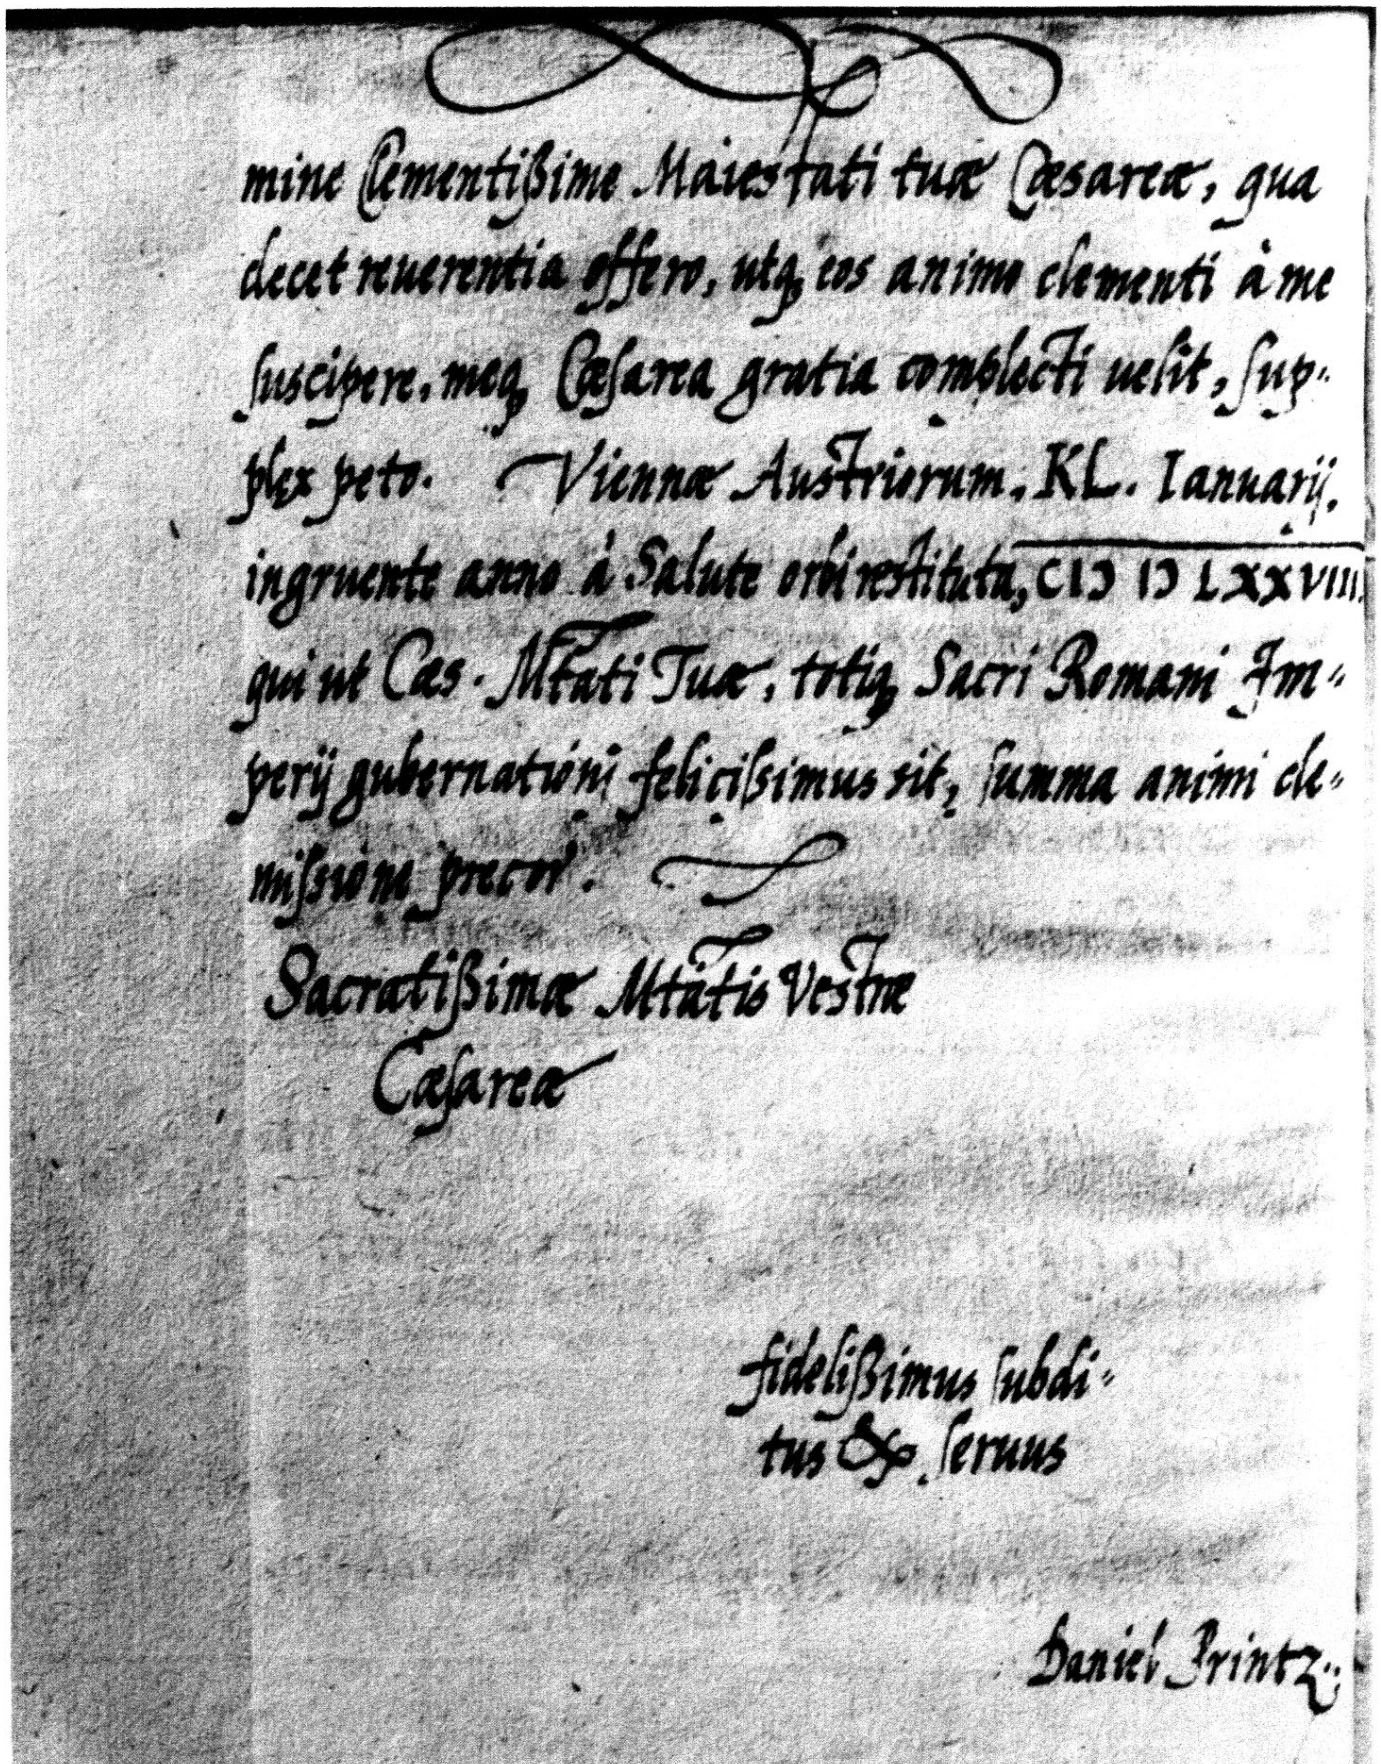 mine Clementißime Maiestati tuæ Cæsareæ, qua
decet reuerentia offero, utq₃ eos animo clementi à me
suscipere, meq₃ Cæsarea gratia complecti uelit, sup-
plex peto. Viennæ Austriorum, KL. Ianuarij.
ingruente anno à Salute orbi restituta, CIↃ IↃ LXXVIII.
qui ut Cæs. Mtati Tuæ, totiq₃ Sacri Romani Im-
perij gubernationi felicissimus sit, summa animi de-
missione precor.
Sacratißimæ Mtatis Vestræ
Cæsareæ
fidelißimus subdi-
tus & seruus
Daniel Printz.